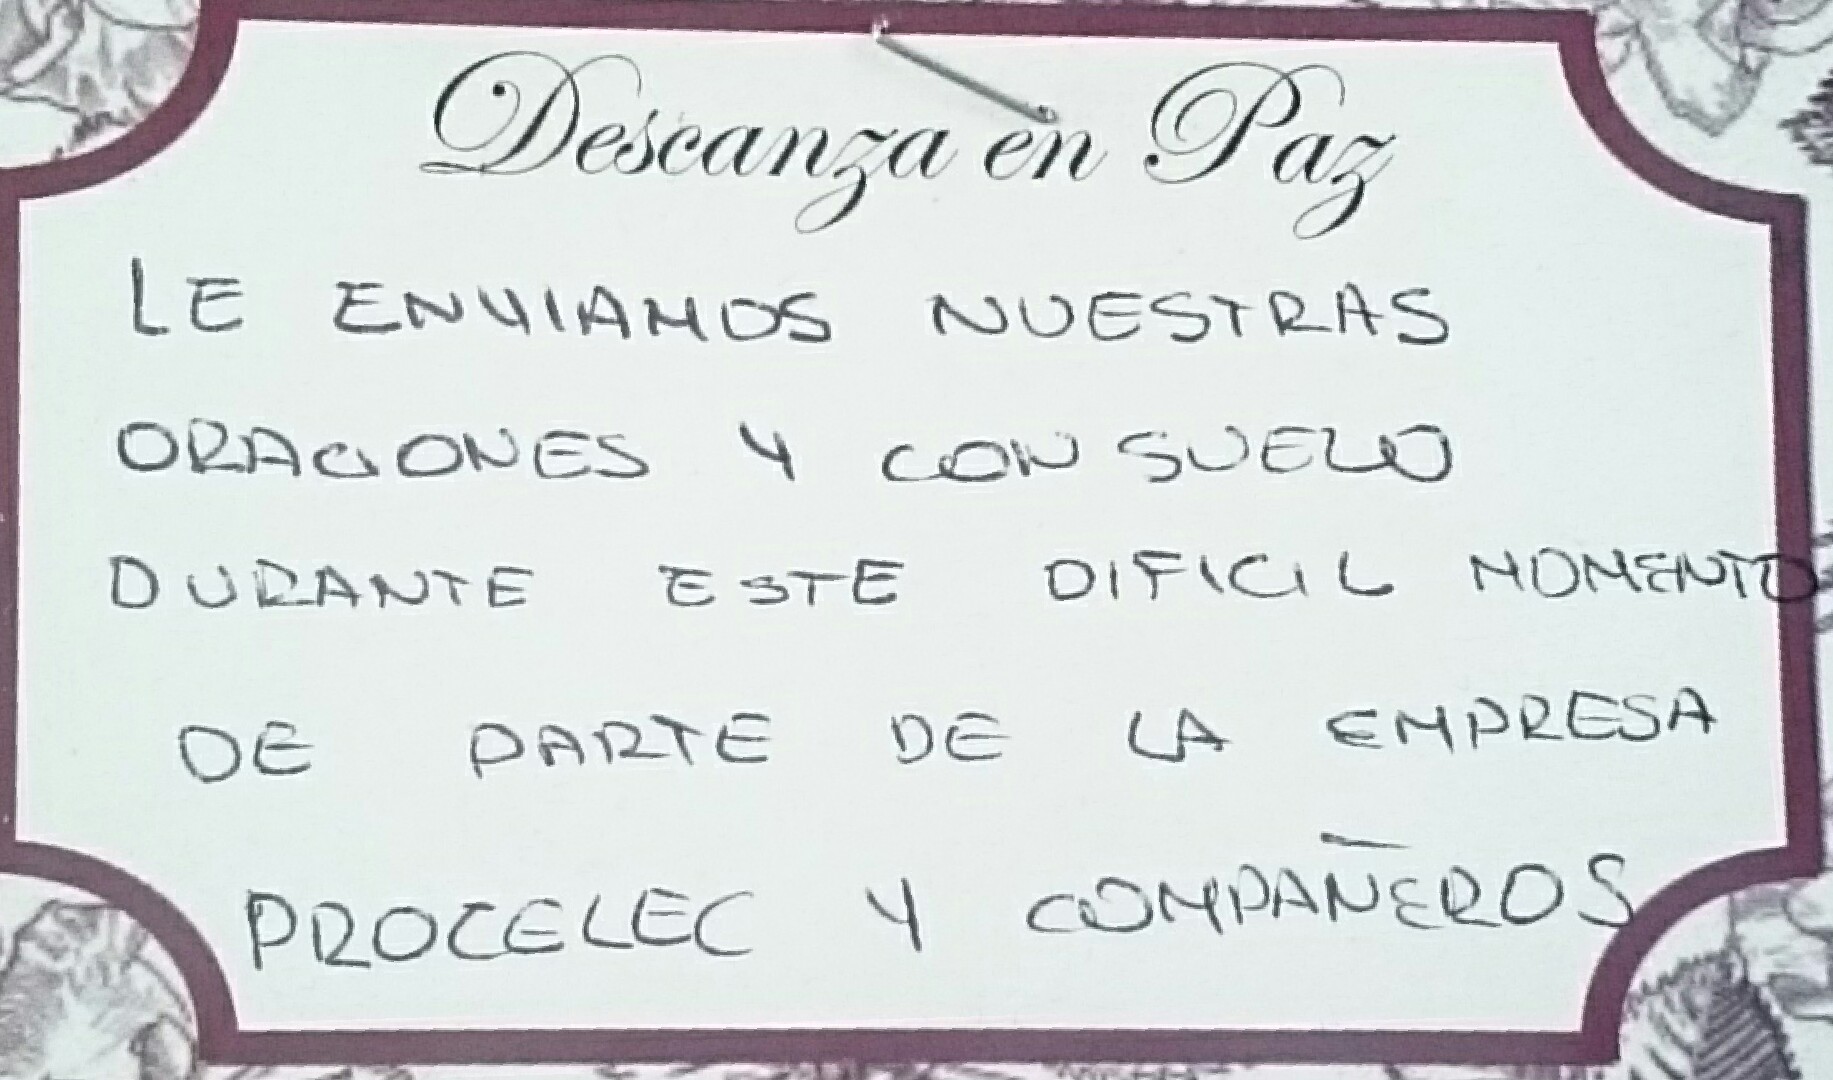 Descanza en Paz
LE ENVIAMOS NUESTRAS
ORACIONES Y CONSUELO
DURANTE ESTE DIFICIL MOMENTO
DE PARTE DE LA EMPRESA
PROCELEC Y COMPAÑEROS